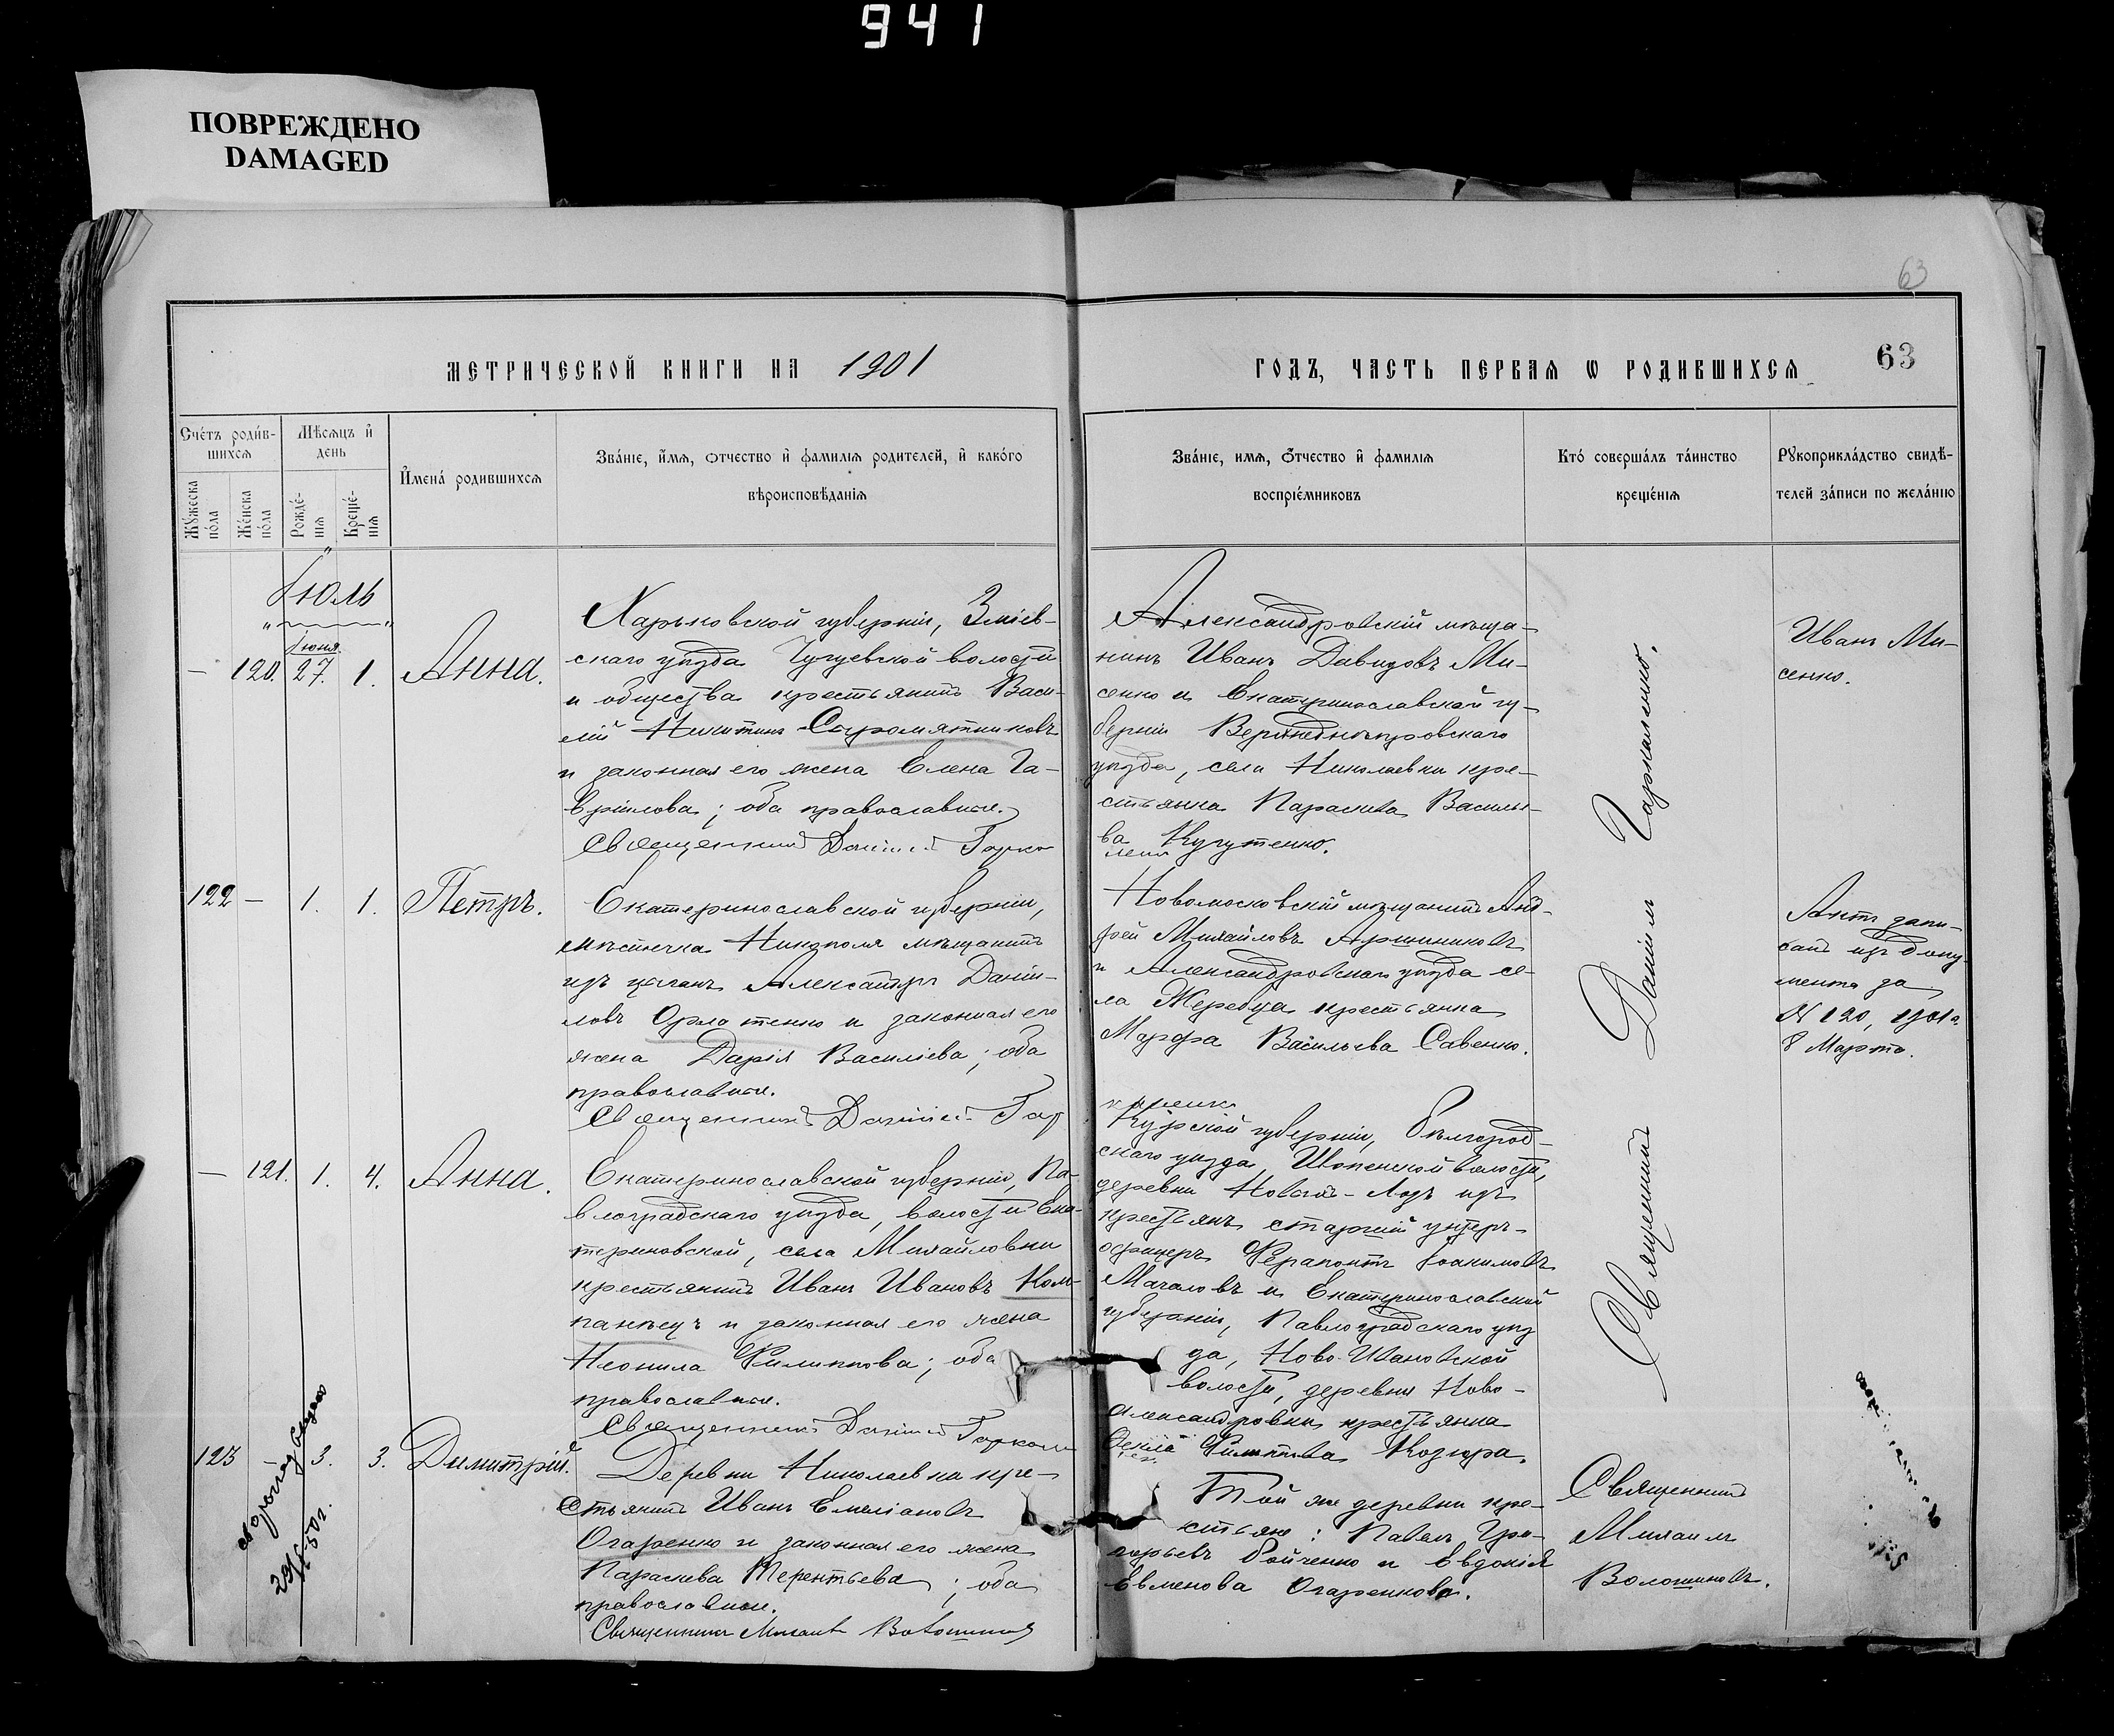 941
ПОВРЕЖДЕНО
DAMAGED
63
МЕТРИЧЕСКОЙ КНИГИ НА 1901
ГОДЪ, ЧАСТЬ ПЕРВАѦ Ѡ РОДИВШИХСѦ
63
Сче́тъ роди́в-
шихсѧ
Мѣсѧцъ и҆
день
И҆мена́ родившихсѧ
Зва́нїе, и҆́мѧ, ѻтчество и҆ фами́лїѧ родителей, и҆ како́го
вѣроисповѣ́данїѧ
Мꙋ́жеска
по́ла
Же́нска
по́ла
Рожде́-
нїѧ
Креще́-
нїѧ
Зва́нїе, имѧ, ѻтчество и҆ фамилїѧ
воспрїе́мниковъ
Кто́ соверша́лъ та́инство
креще́нїѧ
Рꙋкоприкла́дство свидѣ́-
телей за́писи по жела́нїю
Іюль
Іюня
— 120. 27. 1. Анна.
Харьковской губерніи, Зміев-
скаго уѣзда Чугуевской волости
и общества крестьянинъ Васи-
лій Никитинъ Сыромятниковъ
и законная его жена Елена Га-
вріилова; оба православные.
Священникъ Даніилъ Горка-
Александровскій мѣща-
нинъ Иванъ Давидовъ Ми-
сенко и Екатеринославской гу-
берніи Верхнеднѣпровскаго
уѣзда, села Николаевки кре-
стьянка Параскева Василье-
ва
ленко
Иванъ Ми-
сенко.
122 — 1. 1. Петръ.
Екатеринославской губерніи,
мѣстечка Никополя мѣщанинъ
изъ цыганъ Александръ Даніи-
ловъ Орлатенко и законная его
жена Дарія Василіева; оба
православные.
Священникъ Даніилъ Гор
Новомосковскій мѣщанинъ Анд-
рей Михайловъ
и Александровскаго уѣзда се-
ла Жеребца крестьянка
Марфа Васильева Савенко.
Актъ запи-
санъ изъ доку-
мента за
№ 120, 1901 г.
8 Марта.
— 121. 1. 4. Анна.
Екатеринославской губерніи, Па-
влоградскаго уѣзда, волости Ека-
териновской, села Михайловки
крестьянинъ Иванъ Ивановъ Ком-
панѣецъ и законная его жена
Неонила Филиппова; оба
православные.
Священникъ Даніилъ Горкал
каленко
Курской губерніи, Бѣлгород-
скаго уѣзда, Шопенской волости,
деревни изъ
крестьянъ старшій унтеръ-
офицеръ Ферапонтъ Іоакимовъ
и Екатеринославской
губерніи, Павлоградскаго уѣз
да, Ново-Ивановской
волости, деревни Ново-
александровки крестьянка
Ѳекла Филиппова Козюра.
Священникъ Даніилъ Горкаленко.
123 — 3. 3. Димитрій.
Деревни Николаевка кре-
стьянинъ Иванъ Емеліановъ
Огаренко и законная его жена
Параскева Терентьева; оба
православные.
Священникъ Михаилъ Волошиновъ
Той же деревни кре-
стьяне: Павелъ Гри-
горьевъ Бойченко и Евдокія
Евменова Огаренкова.
Священникъ
Михаилъ
Волошиновъ.